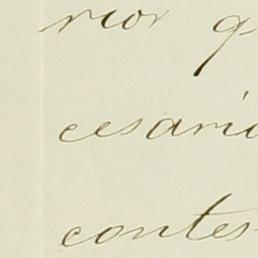 rior q
cesario
contes-